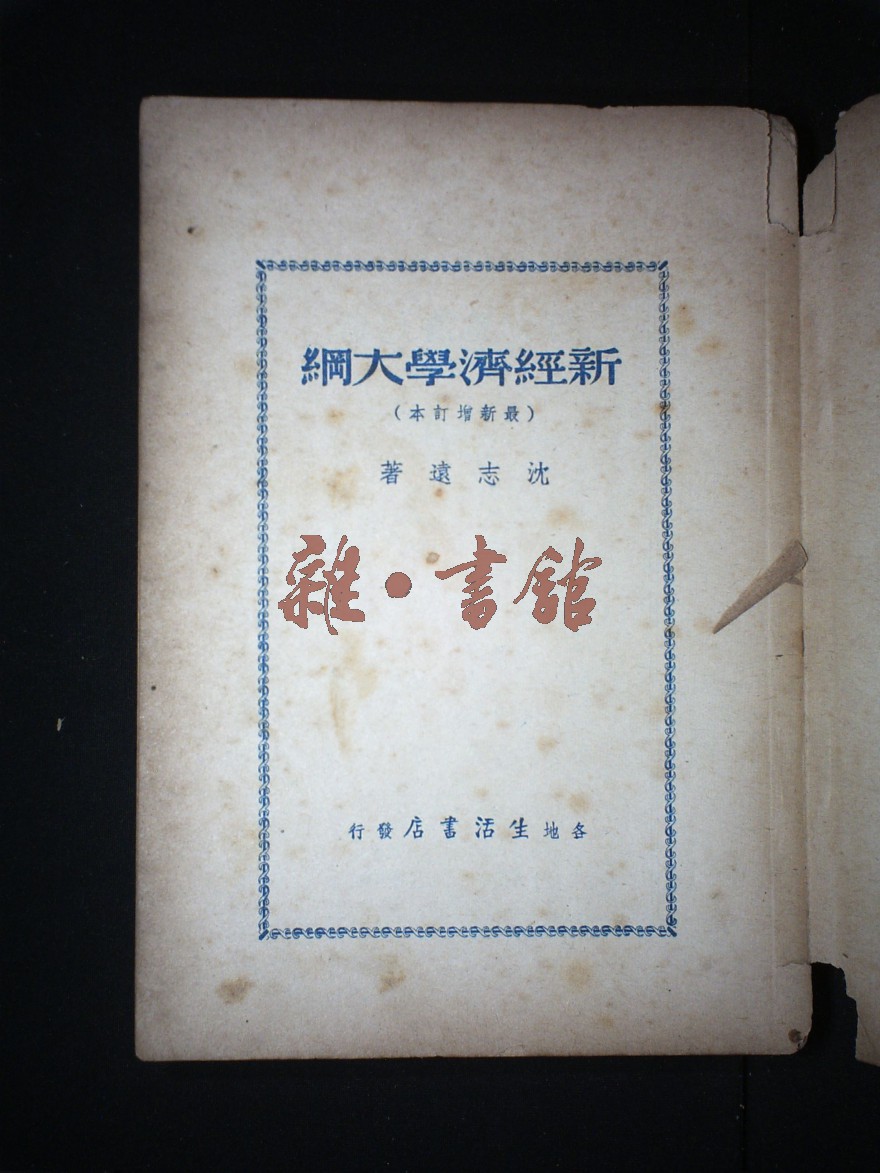 新經濟學大綱
（最新增訂本）
沈志遠著
雜·書館
各地生活書店發行